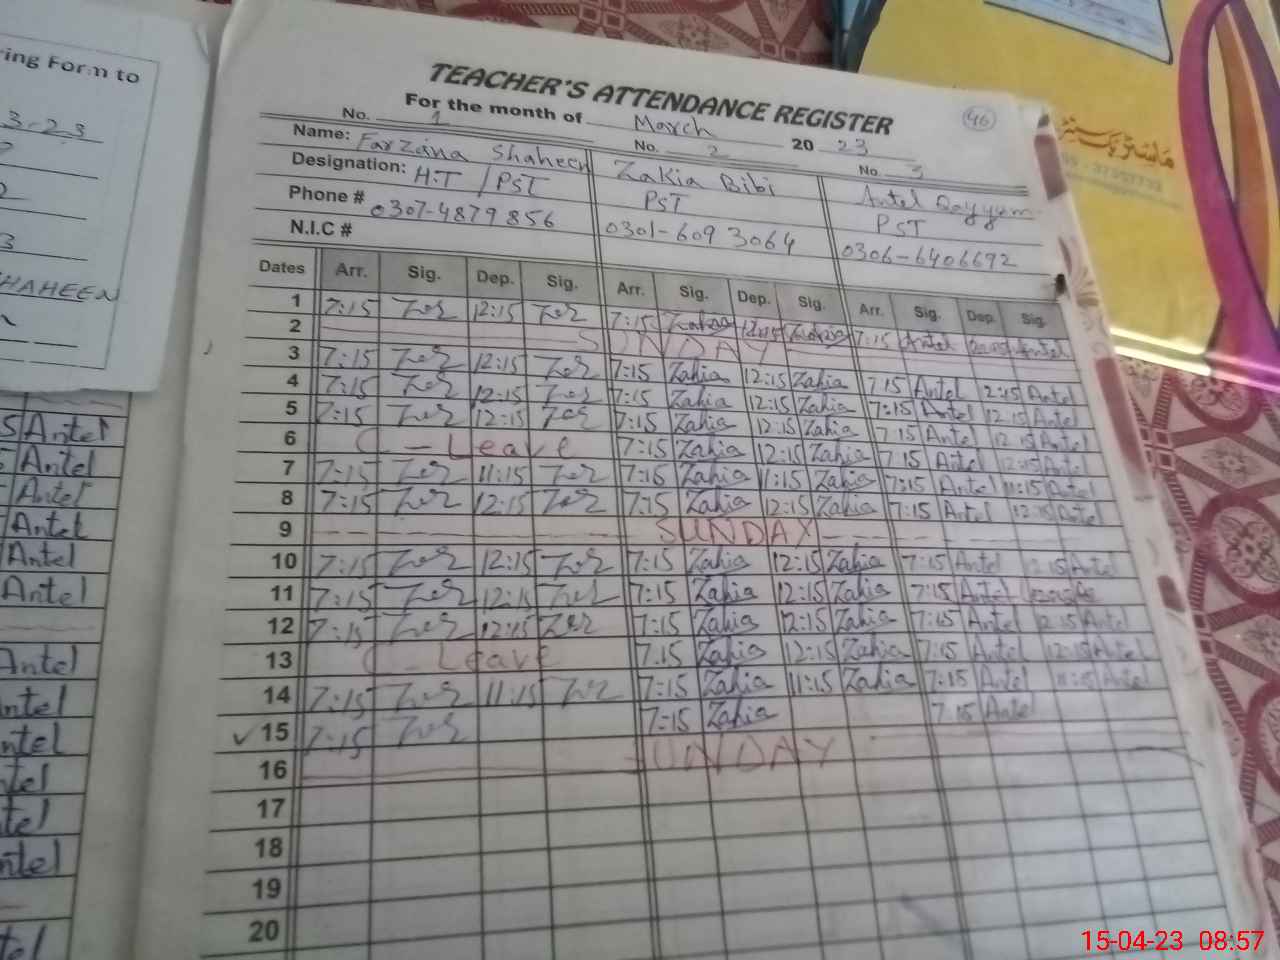 ring Form to
3-2-3
2
3
SHAHEEN
TEACHER'S ATTENDANCE REGISTER
46
For the month of March 20 23
No. 1 No. 2 No. 3
Name: Farzana Shaheen Zakia Bibi Antel Qayyum
Designation: H.T / PST PST PST
Phone # 0307-4879856 0301-609 3064 0306-6406692
N.I.C #
Dates Arr. Sig. Dep. Sig. Arr. Sig. Dep. Sig. Arr. Sig. Dep. Sig.
1 7:15 Zer 12:15 Zer 7:15 Zakia 12:15 Zakia 7:15 Antel Antel
2 SUNDAY
3 7:15 Zer 12:15 Zer 7:15 Zakia 12:15 Zakia 7:15 Antel 12:15 Antel
4 7:15 Zer 12:15 Zer 7:15 Zakia 12:15 Zakia 7:15 Antel 12:15 Antel
5 7:15 Zer 12:15 Zer 7:15 Zakia 12:15 Zakia 7:15 Antel 12:15 Antel
6 C - Leave 7:15 Zakia 12:15 Zakia 7:15 Antel 12:15 Antel
7 7:15 Zer 11:15 Zer 7:15 Zakia 11:15 Zakia 7:15 Antel 11:15 Antel
8 7:15 Zer 12:15 Zer 7:15 Zakia 12:15 Zakia 7:15 Antel 12:15 Antel
9 SUNDAY
10 7:15 Zer 12:15 Zer 7:15 Zakia 12:15 Zakia 7:15 Antel 12:15 Antel
11 7:15 Zer 12:15 Zer 7:15 Zakia 12:15 Zakia 7:15 Antel
12 7:15 Zer 12:15 Zer 7:15 Zakia 12:15 Zakia 7:15 Antel 12:15 Antel
13 C - Leave 7:15 Zakia 12:15 Zakia 7:15 Antel 12:15 Antel
14 7:15 Zer 11:15 Zer 7:15 Zakia 11:15 Zakia 7:15 Antel 11:15 Antel
✓ 15 7:15 Zer 7:15 Zakia 7:15 Antel
16 SUNDAY
17
18
19
20
Antel
Antel
Antel
Antel
Antel
Antel
Antel
ماسٹر
15-04-23 08:57